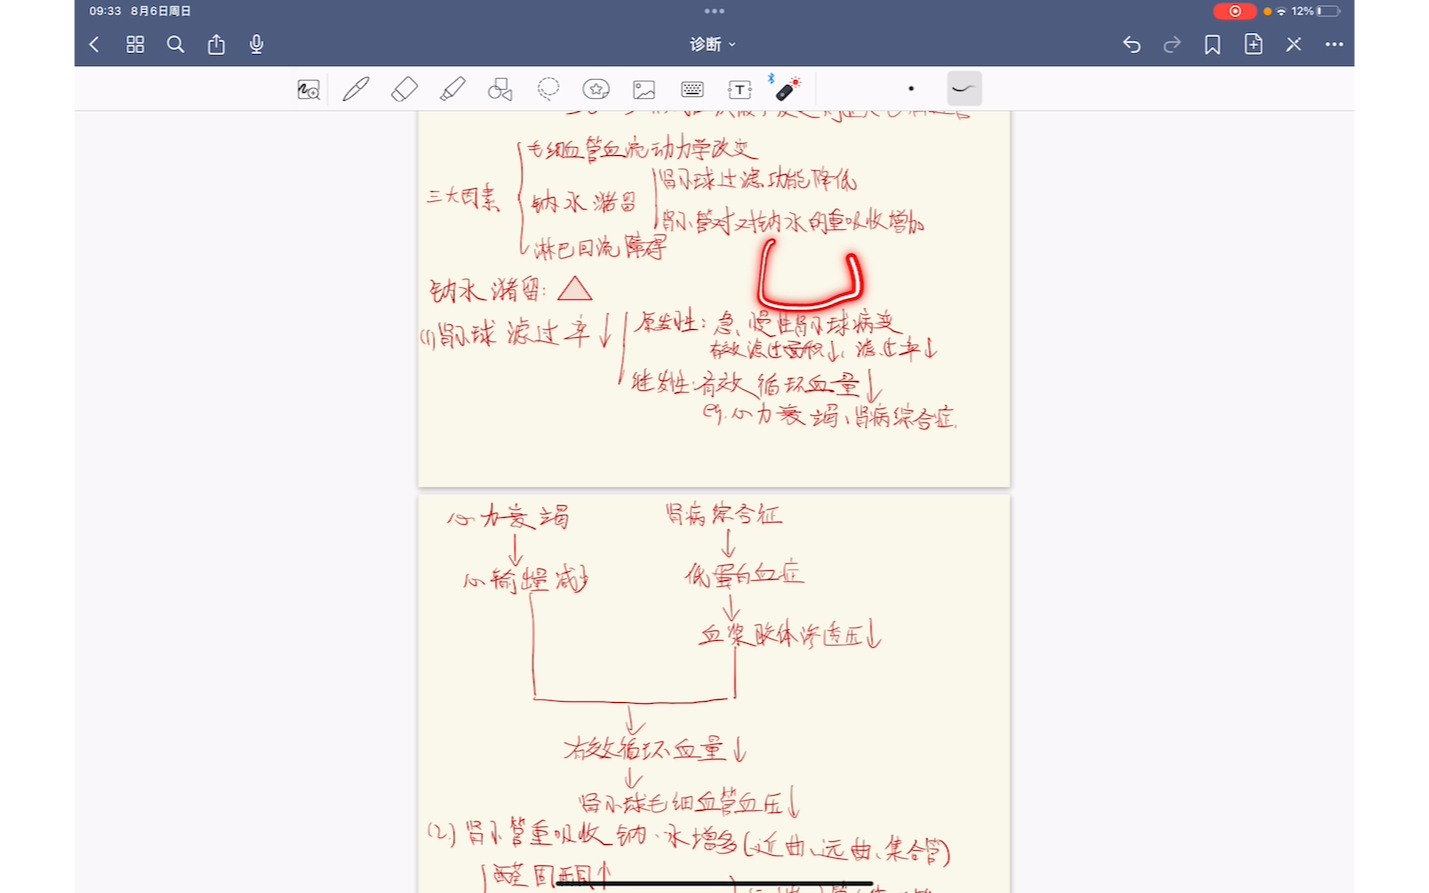 09:33 8月6日周日
12%
诊断
三大因素
毛细血管血流动力学改变
钠水潴留
肾小球过滤功能降低
肾小管对对钠水的重吸收增加
淋巴回流障碍
钠水潴留:
(1)肾小球滤过率↓
原发性:急、慢性肾小球病变
有效滤过面积↓、滤过率↓
继发性:有效循环血量↓
eg.心力衰竭、肾病综合症.
心力衰竭
肾病综合征
↓
↓
心输出量减少
低蛋白血症
↓
血浆胶体渗透压↓
↓
有效循环血量↓
↓
肾小球毛细血管血压↓
(2.)肾小管重吸收钠、水增多(近曲、远曲、集合管)
醛固酮↑